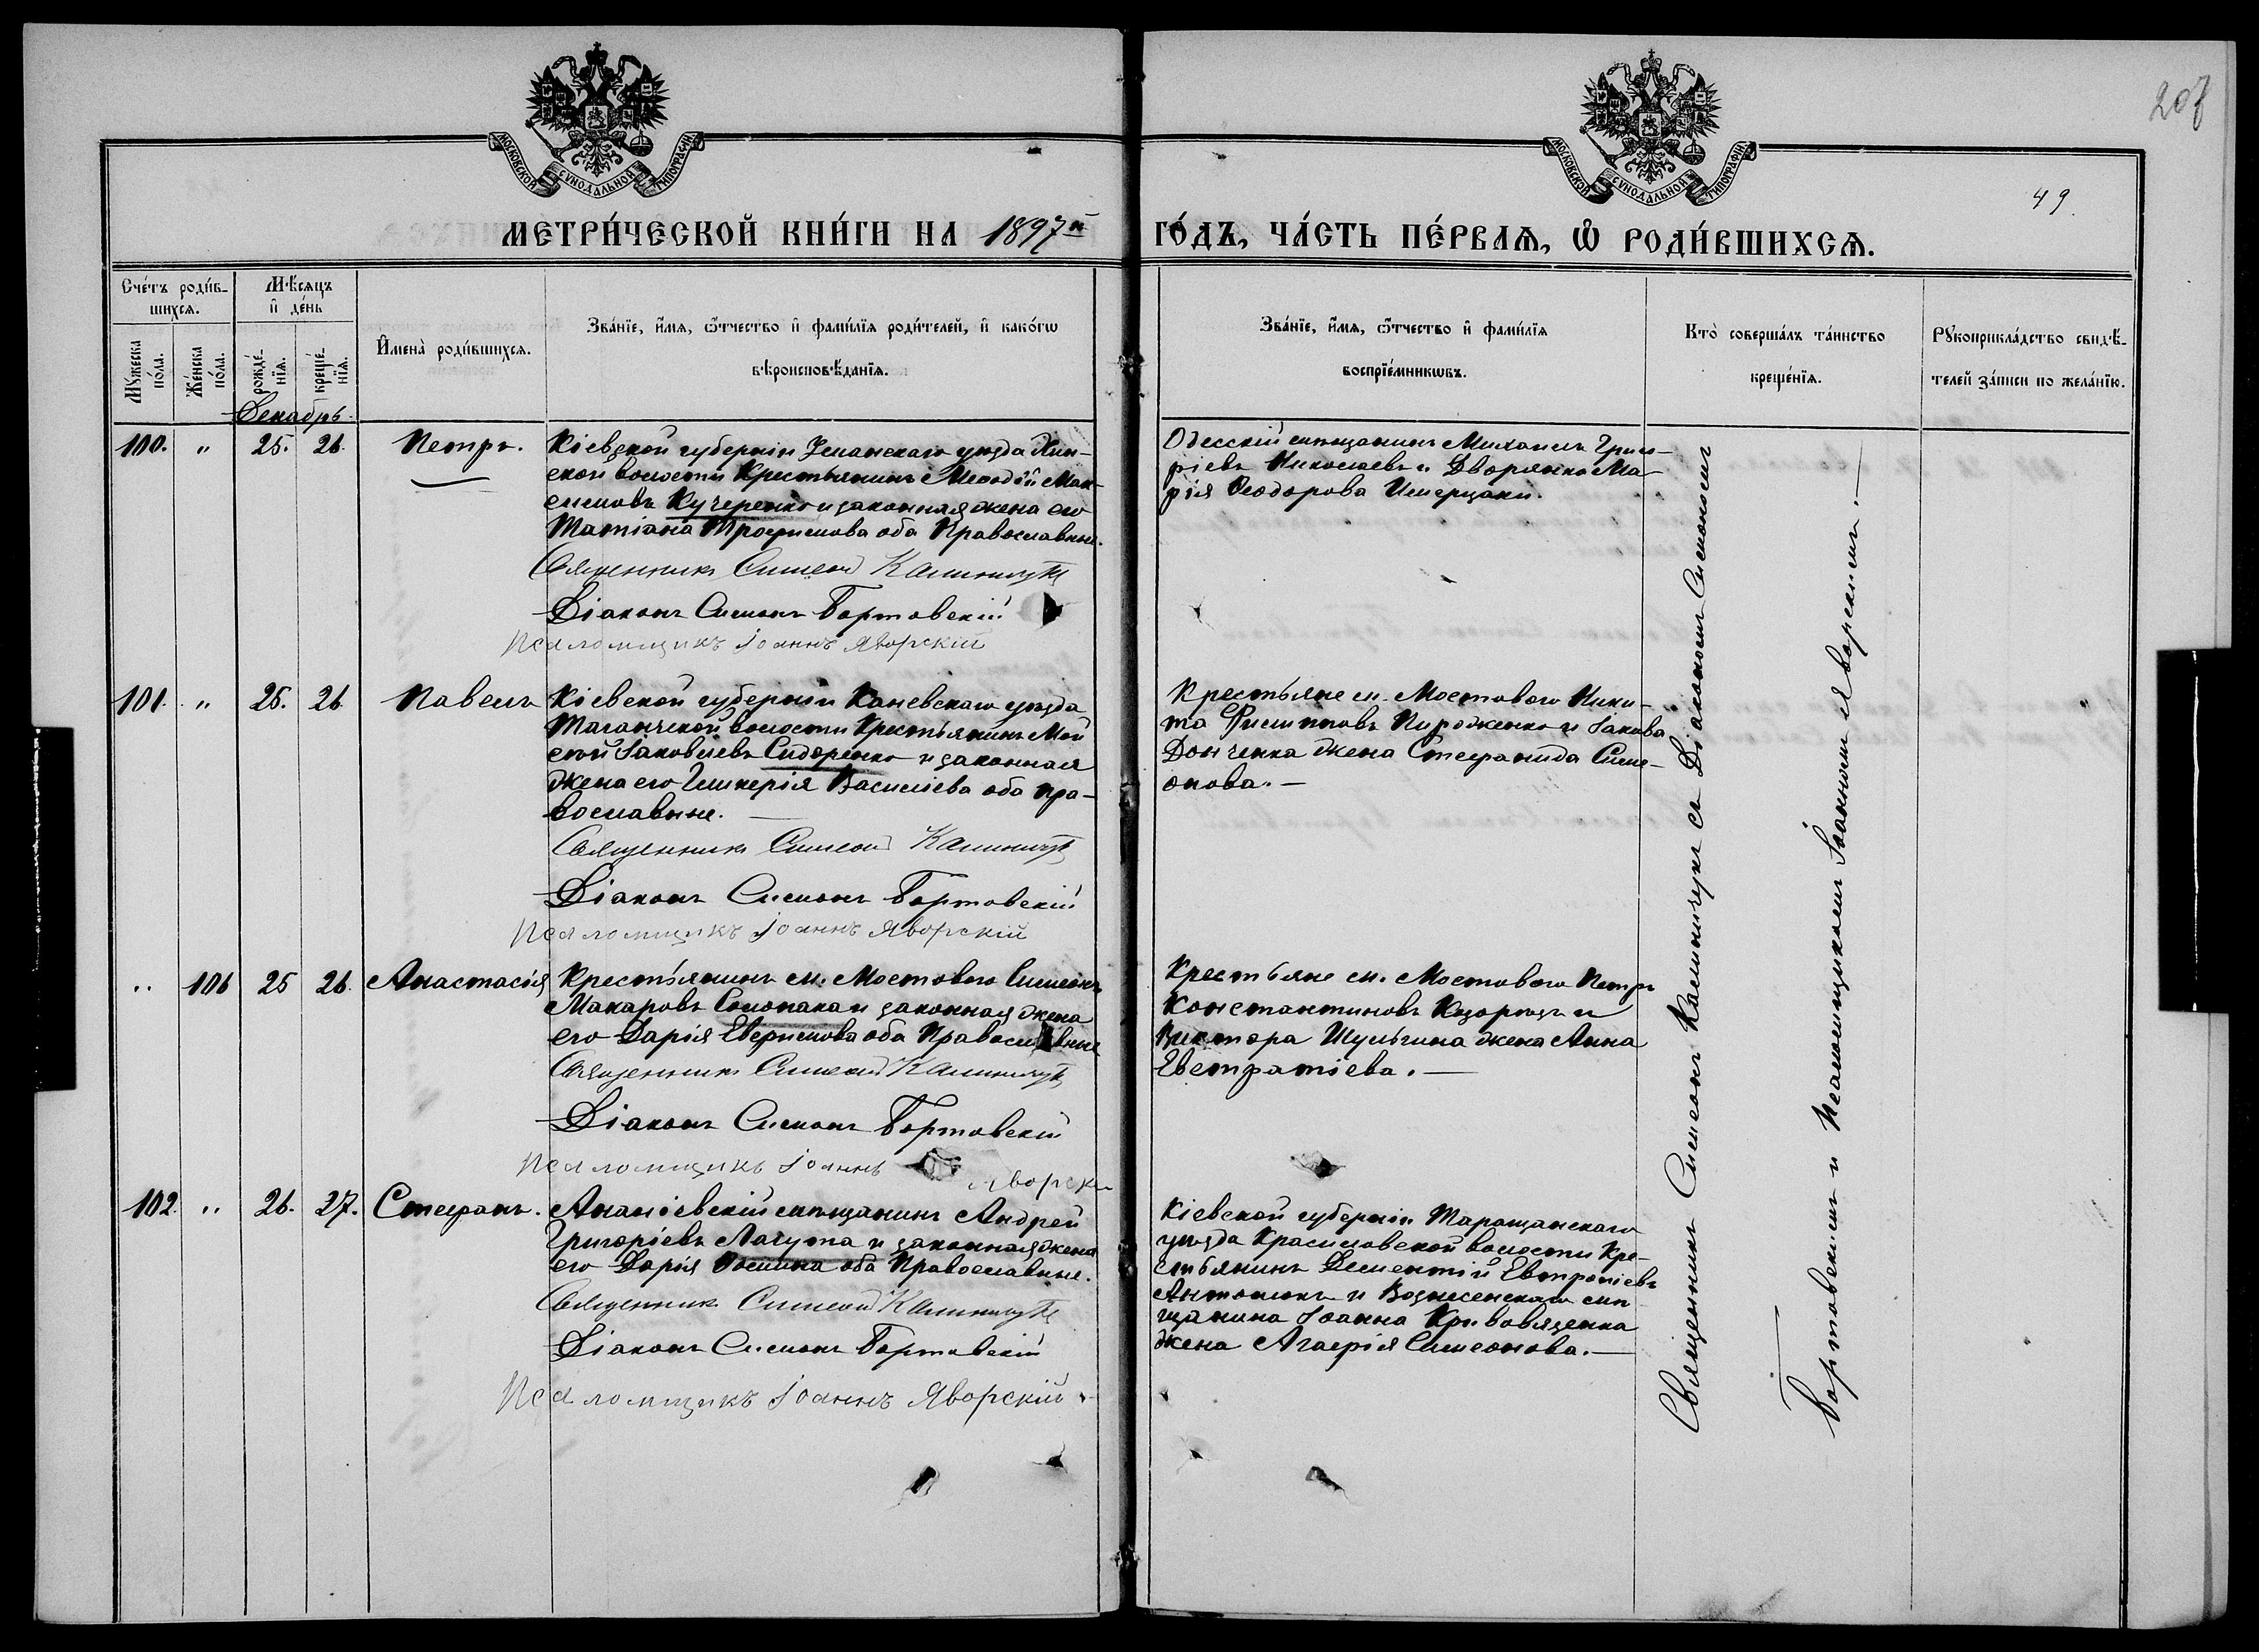 207
49.
МОСКОВСКОЙ СѴНОДАЛЬНОЙ ТИПОГРАФІИ
МОСКОВСКОЙ СѴНОДАЛЬНОЙ ТИПОГРАФІИ
МЕТРИ́ЧЕСКОЙ КНИ́ГИ НА 1897й ГО́ДЪ, ЧА́СТЬ ПЕ́РВАѦ, Ѡ҆ РОДИ́ВШИХСѦ.
Сче́тъ роди́в-
шихсѧ.
Мꙋ́жеска по́ла.
Же́нска по́ла.
Мѣ́сѧцъ
и҆ де́нь
рожде́-
нїѧ.
креще́-
нїѧ.
И҆мена̀ роди́вшихсѧ.
Зва́нїе, и҆́мѧ, ѻ҆́тчество и҆ фами́лїѧ роди́телей, и҆ како́гѡ
вѣроисповѣ́данїѧ.
Зва́нїе, и҆́мѧ, ѻ҆́тчество и҆ фами́лїѧ
воспрїе́мникѡвъ.
Кто̀ соверша́лъ та́инство
креще́нїѧ.
Рꙋкоприкла́дство свидѣ́-
телей за́писи по жела́нїю.
Декабрь
100. " 25. 26. Петръ.
Кіевской губерніи Уманскаго уѣзда
ской волости Крестьянинъ Мефодій Мак-
симовъ Кучеренко и законная жена его
Татіана Трофимова оба Православные.
Священникъ Симеонъ Калинчукъ
Діаконъ Симонъ Бортовскій
Псаломщикъ Іоаннъ Яворскій
Одесскій мѣщанинъ Михаилъ Григо-
ріевъ Николаевъ и Дворянка Ма-
рія Ѳеодорова
101. " 25. 26. Павелъ
Кіевской губерніи Каневскаго уѣзда
Таганчской волости Крестьянинъ Мои
сей Іаковлевъ Сидоренко и законная
жена его Гликерія Василіева оба пра-
вославные. —
Священникъ Симеонъ Калинчукъ
Діаконъ Симонъ Бортовскій
Псаломщикъ Іоаннъ Яворскій
Крестьяне м. Мостового Ники-
та Филипповъ Пироженко и Іакова
Донченка жена Стефанида Симе-
онова. —
" 106 25 26. Анастасія
Крестьянинъ м. Мостового Симеонъ
Макаровъ Солопака и законная жена
его Дарія Евфимова оба Православные
Священникъ Симеонъ Калинчукъ
Діаконъ Симонъ Бортовскій
Псаломщикъ Іоаннъ Яворскі
Крестьяне м. Мостового Петръ
Константиновъ и
Виктора Шульгина жена Анна
Евстратіева. —
102. " 26. 27. Стефанъ.
Ананіевскій мѣщанинъ Андрей
Григоріевъ Лагута и законная жена
его Дарія Ѳомина оба Православные.
Священникъ Симеонъ Калинчукъ
Діаконъ Симонъ Бортовскій
Псаломщикъ Іоаннъ Яворскій
Кіевской губерніи Таращанскаго
уѣзда Красиловской волости Кре-
стьянинъ Дементій Евтропіевъ
Антонюкъ и Вознесенскаго мѣ
щанина Іоанна Кривовященка
жена Агафія Симеонова. —
Священникъ Симеонъ Калинчукъ съ Діакономъ Симономъ
Бортовскимъ и Псаломщикомъ Іоанномъ Яворскимъ. —